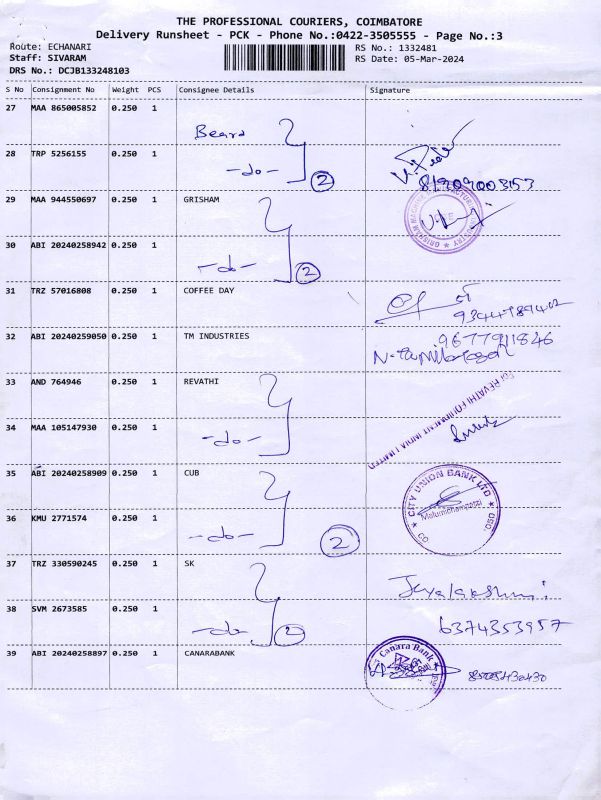 THE PROFESSIONAL COURIERS, COIMBATORE
Delivery Runsheet - PCK - Phone No.:0422-3505555 - Page No.:3
Route: ECHANARI
RS No.: 1332481
Staff: SIVARAM
RS Date: 05-Mar-2024
DRS No.: DCJB133248103
S No Consignment No Weight PCS Consignee Details Signature
27 MAA 865005852 0.250 1
Beard
28 TRP 5256155 0.250 1
-do- 2
29 MAA 944550697 0.250 1 GRISHAM
30 ABI 20240258942 0.250 1
-do- 2
31 TRZ 57016808 0.250 1 COFFEE DAY
32 ABI 20240259050 0.250 1 TM INDUSTRIES
9677911846
33 AND 764946 0.250 1 REVATHI
REVATHI EQUIPMENT INDIA LIMITED
34 MAA 105147930 0.250 1
-do-
35 ABI 20240258909 0.250 1 CUB
CITY UNION BANK LTD
36 KMU 2771574 0.250 1
-do- 2
37 TRZ 330590245 0.250 1 SK
Jeyalakshmi
38 SVM 2673585 0.250 1
-do- 2
6374353957
39 ABI 20240258897 0.250 1 CANARABANK
Canara Bank